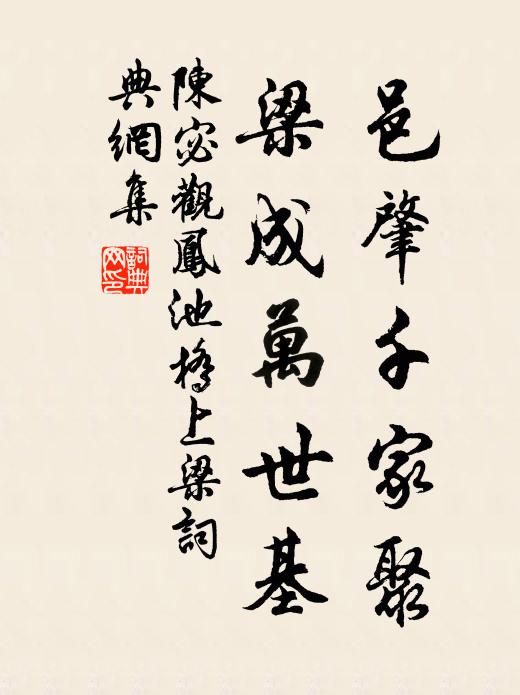 邑肇千家聚
梁成萬世基
陳宓觀鳳池橋上梁詞
典網集
詞典
网印